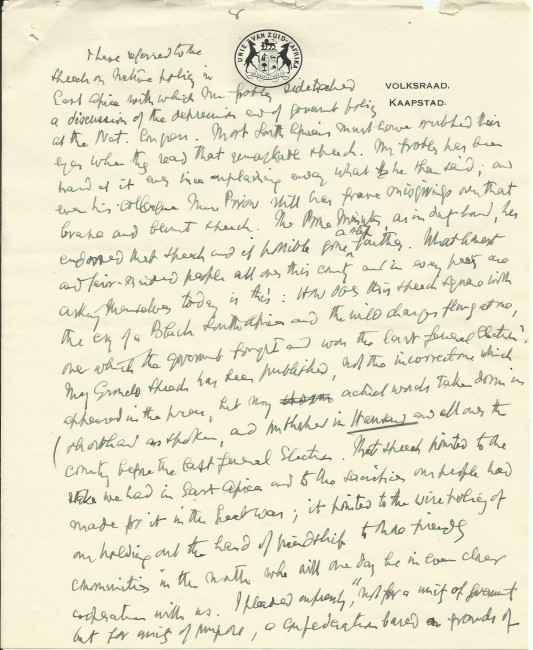 8
UNIE VAN ZUID-AFRIKA
VOLKSRAAD,
KAAPSTAD.
I have referred to the
speech on Native policy in
East Africa with which Mr Grobler sidetracked
a discussion of the depression and of government policy
at the Nat. Congress. Most South Africans must have rubbed their
eyes when they read that remarkable speech. Mr Grobler has been
hard at it ever since explaining away what he then said; and
even his colleague Minr Pirow still has grave misgivings over that
brave and blunt speech. The Prime Minister, as in duty bound, has
endorsed that speech and if possible gone a step further. What honest
and fair-minded people all over this country and in every party are
asking themselves today is this: How does this speech square with
the cry of a Black South Africa and the wild charges flung at me,
over which the government fought and won the last general Election?
My speech has been published, not the incorrect one which
appeared in the press, but my actual words taken down in
shorthand as spoken, and published in Hansard and all over the
country before the last general Election. That speech pointed to the
stake we had in East Africa and to the sacrifices our people had
made for it in the Great War; it pointed to the wise policy of
our holding out the hand of friendship to those friendly
communities in the north who will one day be in even closer
cooperation with us. I pleaded expressly, "not for a unity of government
but for unity of purpose, a confederation based on grounds of